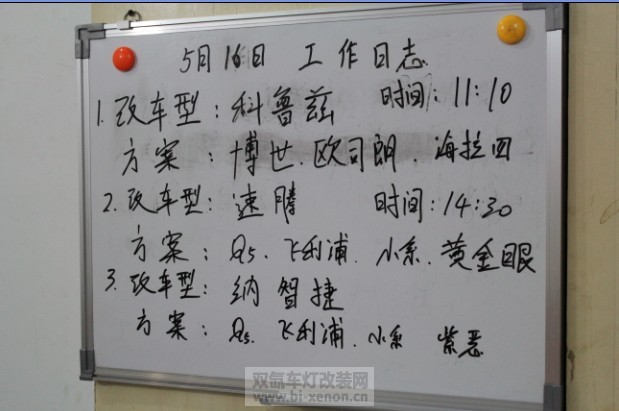 5月16日 工作日志
1. 改车型：科鲁兹 时间：11:10
方案：博世、欧司朗、海拉四
2. 改车型：速腾 时间：14:30
方案：Q5、飞利浦、小系、黄金眼
3. 改车型：纳智捷
方案：Q5、飞利浦、小系 紫恶
双氙车灯改装网
www.bi-xenon.cn